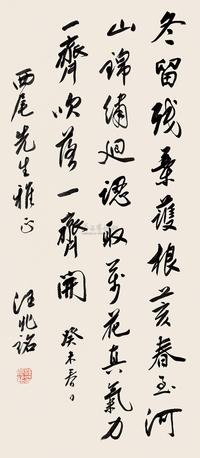 冬留殘葉護根荄春至河
山錦繡迴認取萬花真氣力
一齊吹落一齊開 癸未春日
西尾先生雅正 汪兆銘